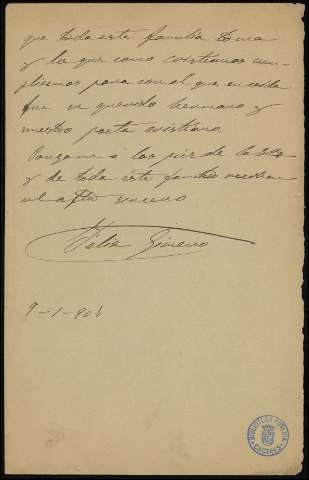 que toda esta familia toma
y la que como cristianos cum-
pliremos para con al que en vida
fue su querido hermano y
nuestro poeta cristiano.
Pongame á los pies de la Sra
y de toda esta familia reciban
el afto sincero
Felix Gimeno
9-1-904
BIBLIOTECA PUBLICA
CACERES